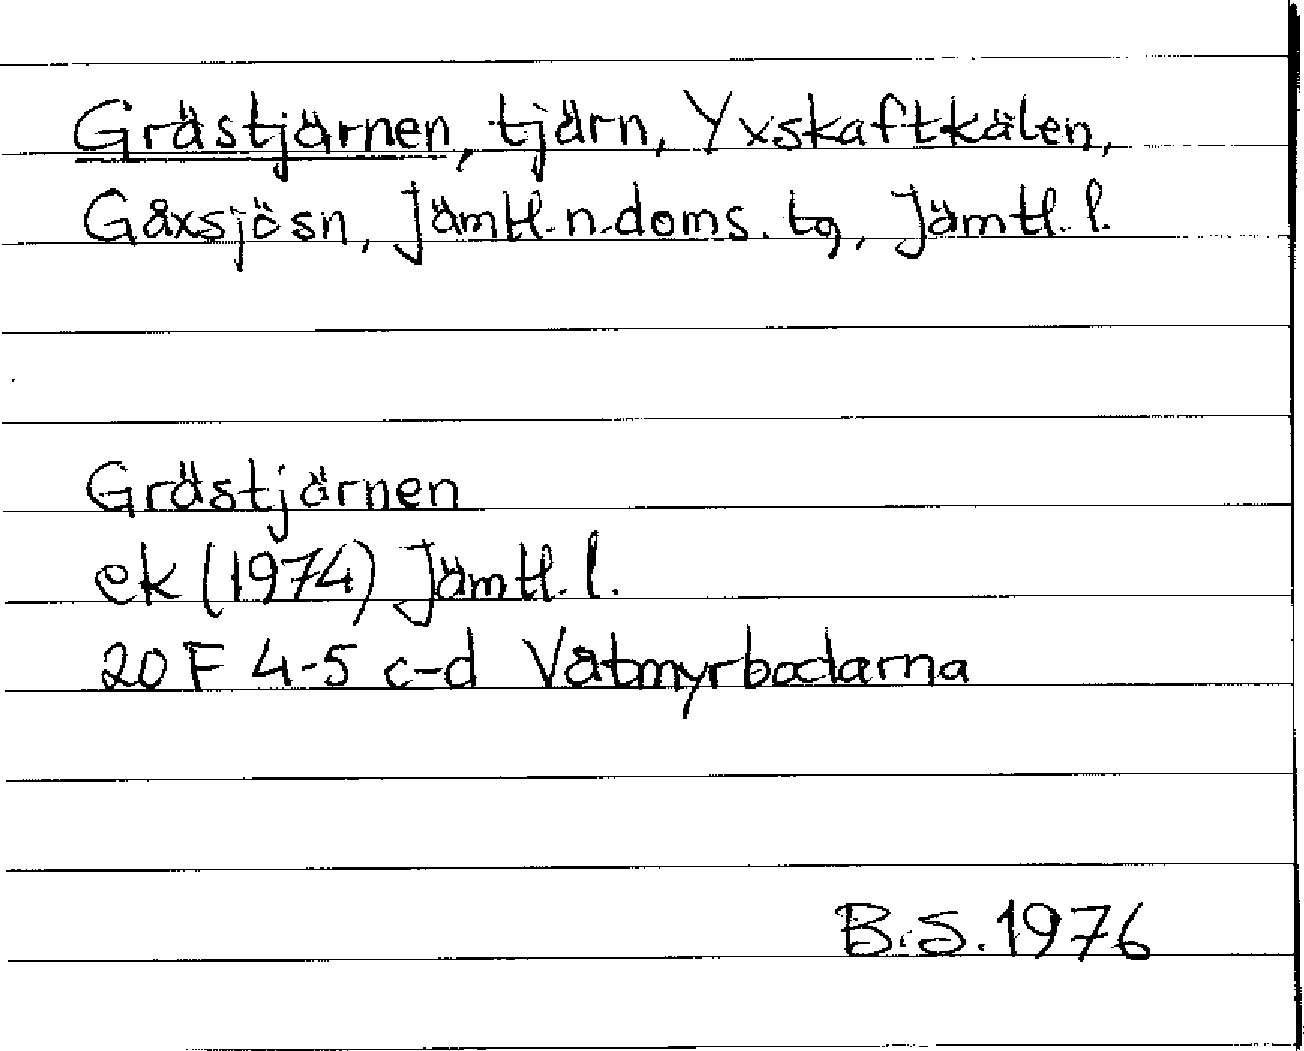 Grästjärnen, tjärn, Yxskaftkälen,
Gåxsjösn, Jämtl. n. doms. tg, Jämtl. l.
Grästjärnen
ek (1974) Jämtl. l.
20 F 4-5 c-d Våtmyrbodarna
B.S. 1976